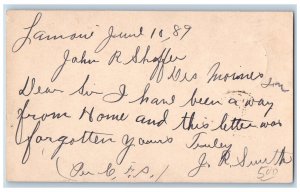 Lamoni June 10, 89
John R Shaffer
Des Moines
Dear Sir I have been a way
from Home and this letter was
forgotten yours Truley
J. R. Smith
500